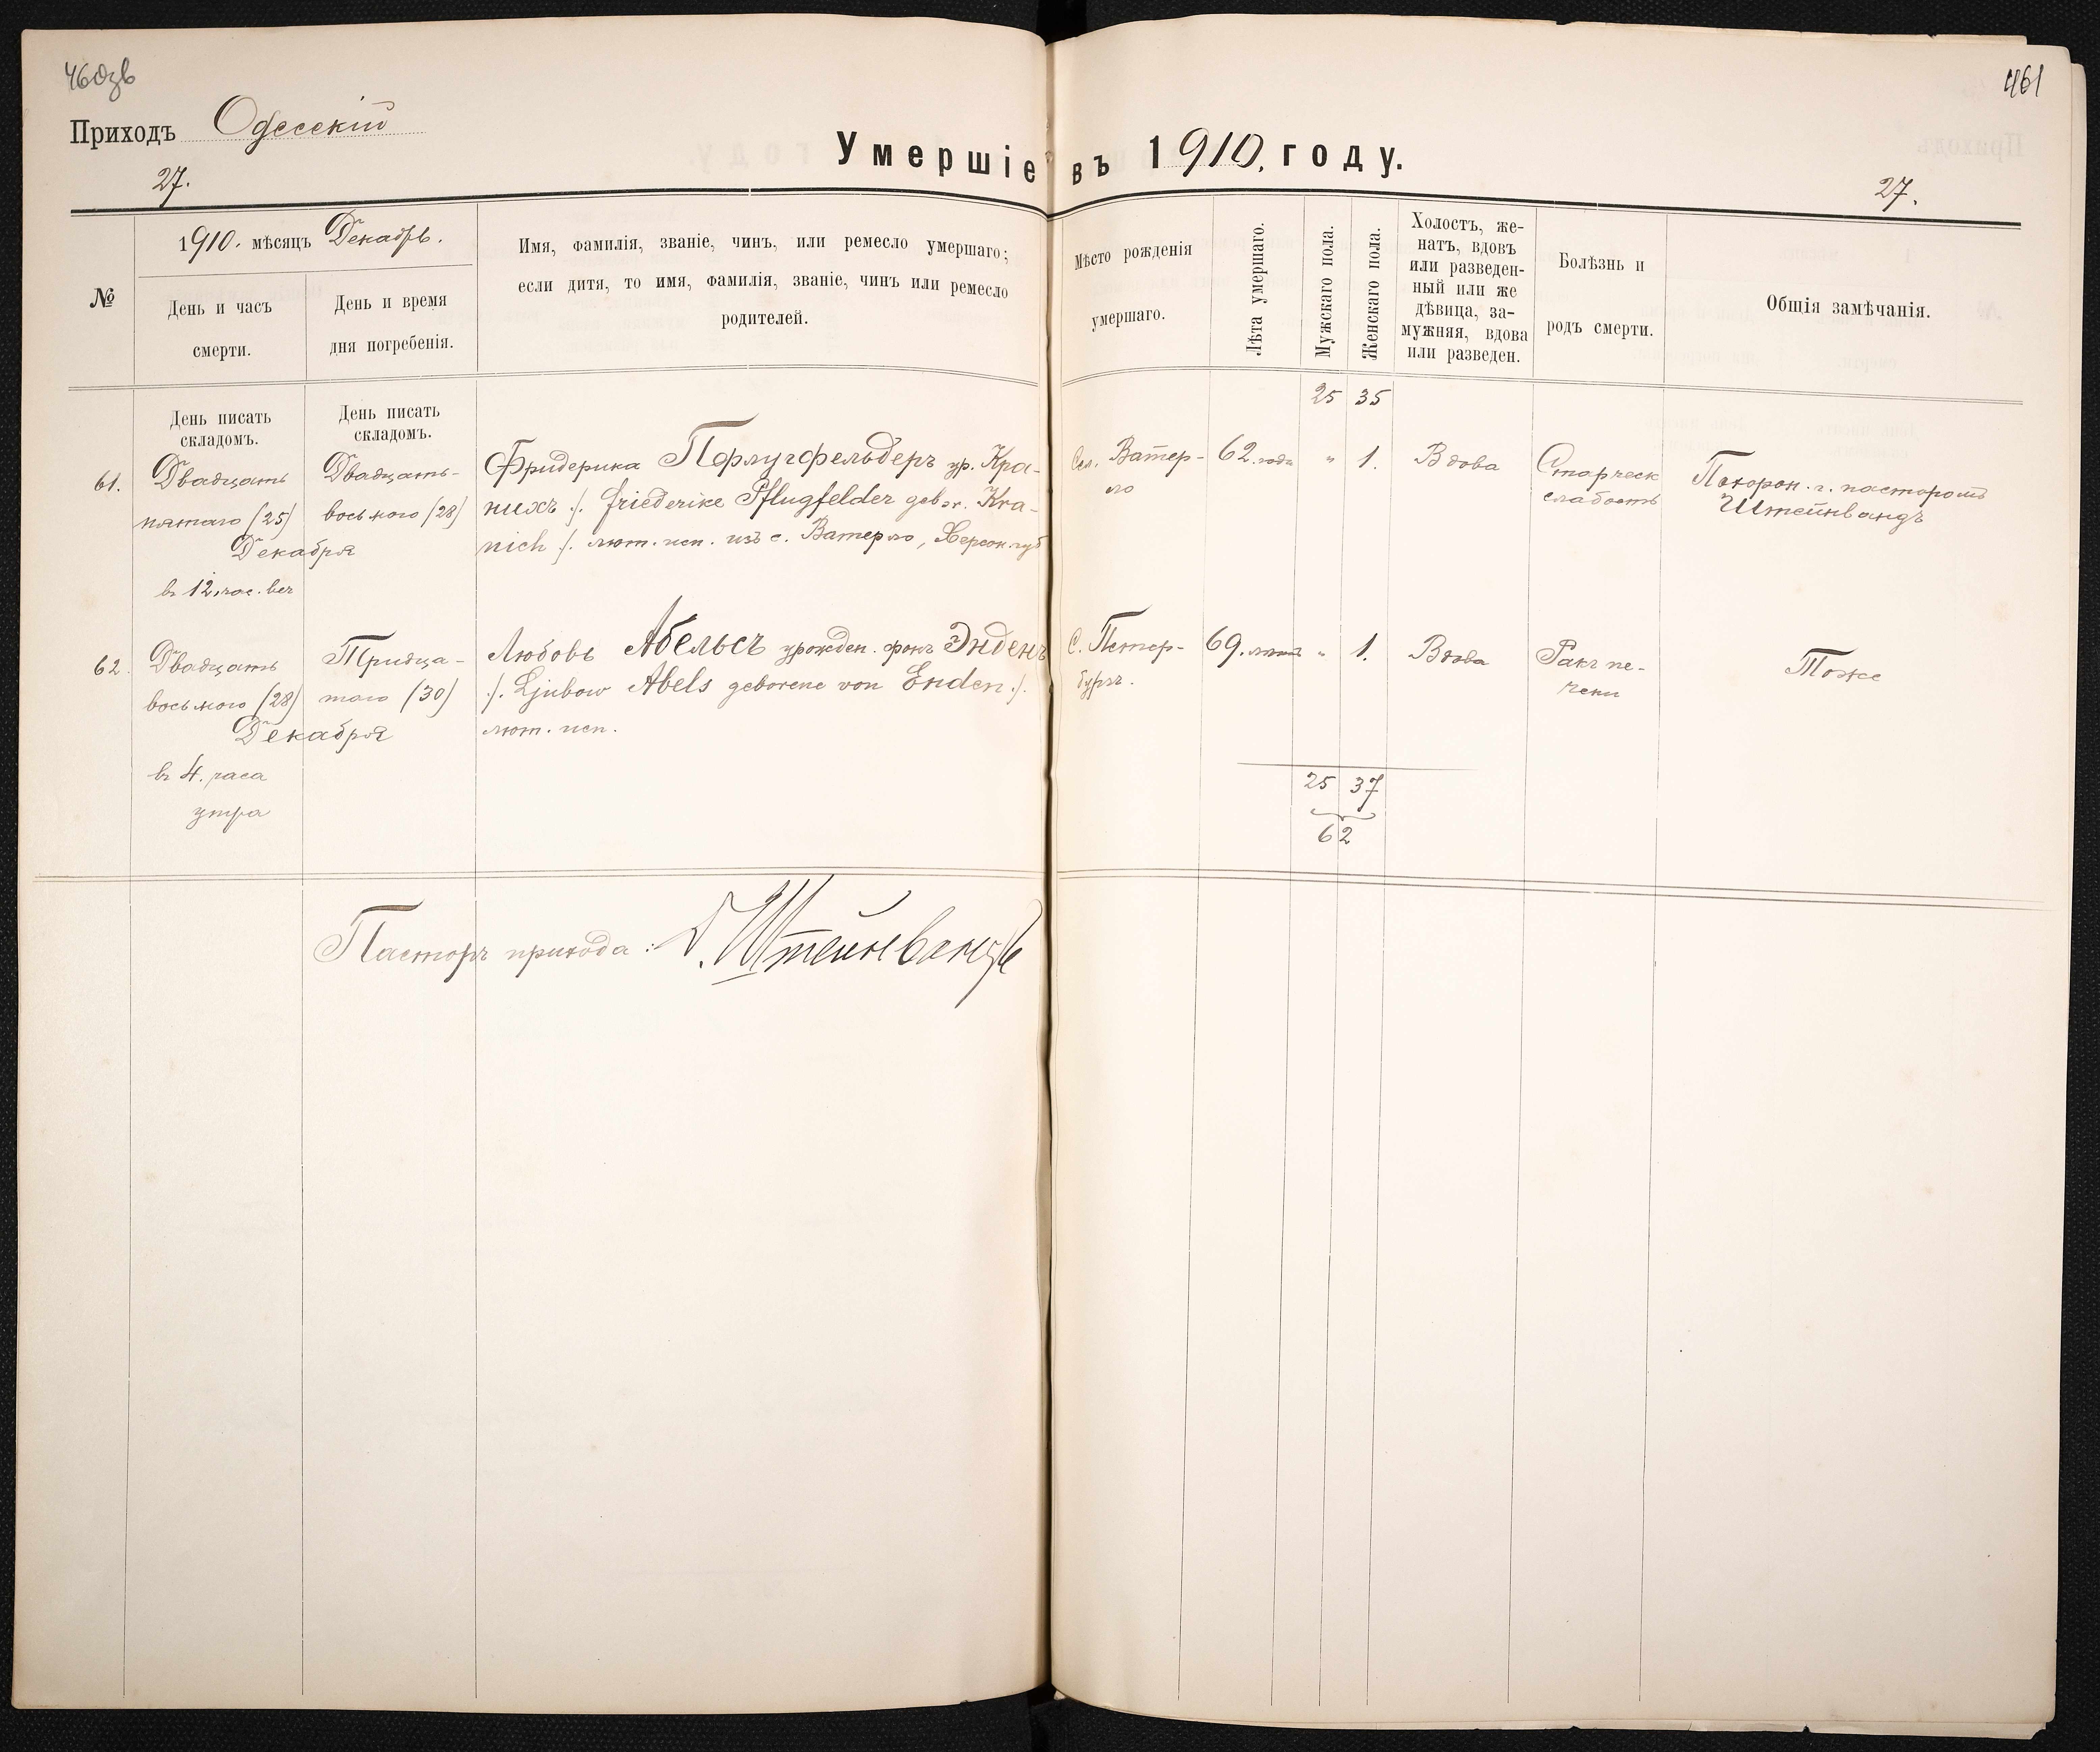 460зв
461
Приходъ Одесскій
Умершіе въ 1910. году.
27.
27.
№
1910. мѣсяцъ Декабрь.
День и часъ
смерти.
День и время
дня погребенія.
Имя, фамилія, званіе, чинъ, или ремесло умершаго;
если дитя, то имя, фамилія, званіе, чинъ или ремесло
родителей.
Мѣсто рожденія
умершаго.
Лѣта умершаго.
Мужскаго пола.
Женскаго пола.
Холостъ, же-
натъ, вдовъ
или разведен-
ный или же
дѣвица, за-
мужняя, вдова
или разведен.
Болѣзнь и
родъ смерти.
Общія замѣчанія.
День писать
складомъ.
День писать
складомъ.
25 35
61.
Двадцать
пятаго (25)
Декабря
въ 12. час. веч
Двадцать-
восьмого (28)
Фридерика Пфлугфельдеръ ур. Кра-
нихъ ./. Friederike Pflugfelder gebor. Kra-
nich ./. лют. исп. изъ с. Ватерло, Херсон. губ
Сел. Ватер-
ло
62. года
" 1.
Вдова
Старческ
слабость
Похорон. г. пасторомъ
Штейнвандъ
62.
Двадцать
восьмого (28)
Декабря
въ 4. часа
утра
Тридца-
таго (30)
Любовь Абельсъ урожден. фонъ Энденъ
./. Ljubow Abels geborene von Enden ./.
лют. исп.
С. Петер-
бургъ.
69. лѣтъ
" 1.
Вдова
Ракъ пе-
чени
Тоже
25 37
62
Пасторъ прихода: Д. Штейнвандъ